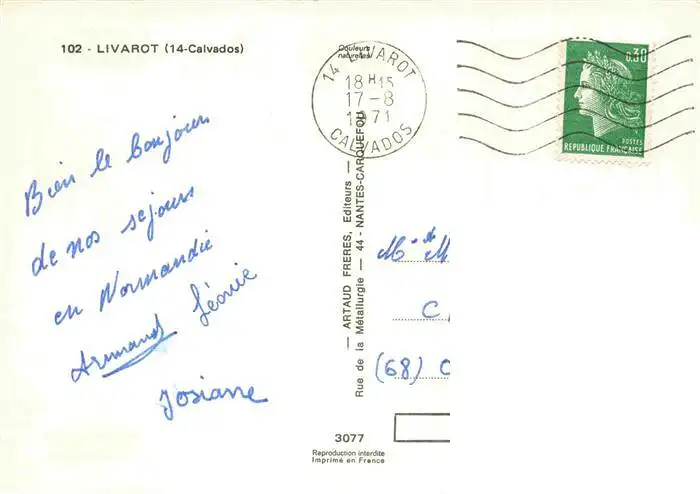 102 - LIVAROT (14-Calvados)
Couleurs
naturelles
14 LIVAROT
18 H 15
17-8
1971
CALVADOS
0,30
POSTES
REPUBLIQUE FRANÇAISE
Bien le bonjour
de nos sejours
en Normandie
Armand Léonie
Josiane
— ARTAUD FRERES, Editeurs —
Rue de la Métallurgie — 44 - NANTES-CARQUEFOU
M
C
(68) C
3077
Reproduction interdite
Imprimé en France